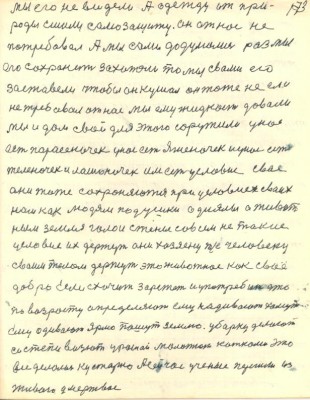 мы его не видели А одежду от при- 173
роды сшили самозащиту. он от нас не
потребовал А мы сами додумались раз мы
его сохранить захотели то мы с вами его
заставели чтобы он кушал он тоже не ели
не требовал от нас мы ему жидкость довали
мы и дом свой для этого сорутили у нас
ест парасеночек у нас ест Ягненочек и у нас ест
теленочек и лашоночек им ест условие свае
они тоже сохроняются при условиях своих
нам как людям подушки одеялы а живот
ным земля голои стены совсем не такие
условие их держут они хозяену т/е человеку
своим телом держут это животное как своё
добро Если схочит зарежит и употребит это
по возросту определяют ему надивают хомут
ему одивают Ярмо пашут землю. уборку делают
со степи визют урожай молотют катком это
вы делолы кустарно А сичас ученые перешли из
живого в мертвое